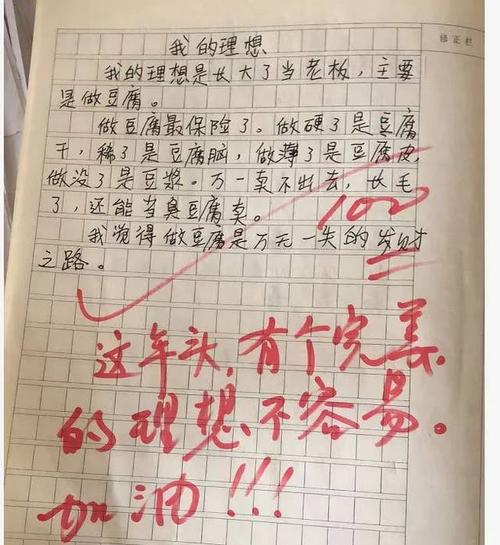 修正栏
我的理想
我的理想是长大了当老板，主要
是做豆腐。
做豆腐最保险了。做硬了是豆腐
干，稀了是豆腐脑，做薄了是豆腐皮，
做没了是豆浆。万一卖不出去，长毛
了，还能当臭豆腐卖。
100
我觉得做豆腐是万无一失的发财
之路。
这年头，有个完美
的理想不容易。
加油!!!